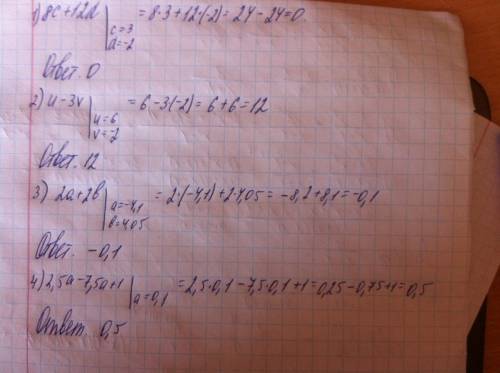 1) 8c+12d | c=3 d=-2 = 8·3+12·(-2)=24-24=0.
Ответ. 0
2) u-3v | u=6 v=-2 = 6-3(-2)=6+6=12
Ответ. 12
3) 2a+2b | a=-4,1 b=4,05 = 2·(-4,1)+2·4,05=-8,2+8,1=-0,1
Ответ. -0,1
4) 2,5a-7,5a+1 | a=0,1 = 2,5·0,1-7,5·0,1+1=0,25-0,75+1=0,5
Ответ. 0,5